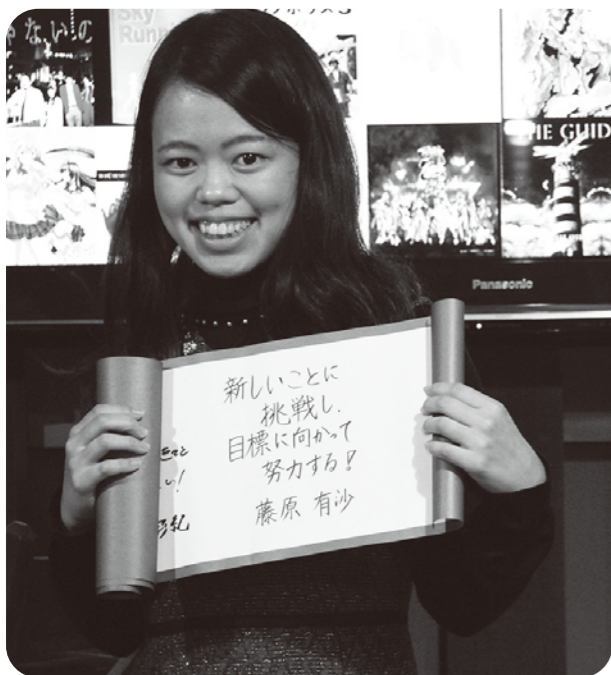 ゃないの
Sky
Runn
THE GUID
Panasonic
新しいことに
挑戦し、
目標に向かって
努力する!
藤原 有沙
い!